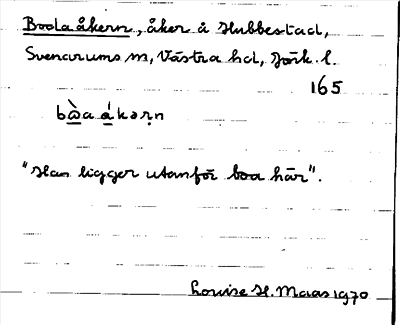 Boda åkern, åker å Hubbestad,
Svenarums sn, Västra hd, Jönk. l.
165
bὼa ákərṇ
"Han ligger utanför boa här".
Louise H. Maas 1970